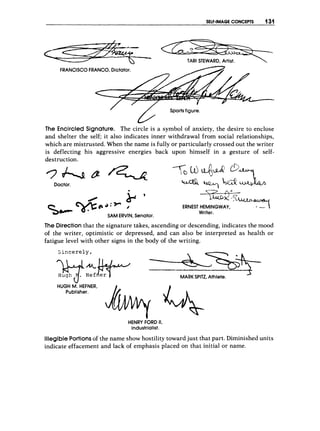 SELF-IMAGE CONCEPTS 131
TARI STEWARD, Artist.
FRANCISCO FRANCO, Dictator.
Sports figure.
The Encircled Signature. The circle is a symbol of anxiety, the desire to enclose
and shelter the self; it also indicates inner withdrawal from social relationships,
which are mistrusted. When the name is fully or particularly crossed out the writer
is deflecting his aggressive energies back upon himself in a gesture of self-
destruction.
Doctor.
ERNEST HEMINGWAY,
Writer.
SAM ERVIN, Senator.
The Direction that the signature takes, ascending or descending, indicates the mood
of the writer, optimistic or depressed, and can also be interpreted as health or
fatigue level with other signs in the body of the writing.
Sincerely,
Hugh M. Hefner
MARK SPITZ, Athlete.
HUGH M. HEFNER,
Publisher.
HENRY FORD II,
Industrialist.
Illegible Portions of the name show hostility toward just that part. Diminished units
indicate effacement and lack of emphasis placed on that initial or name.